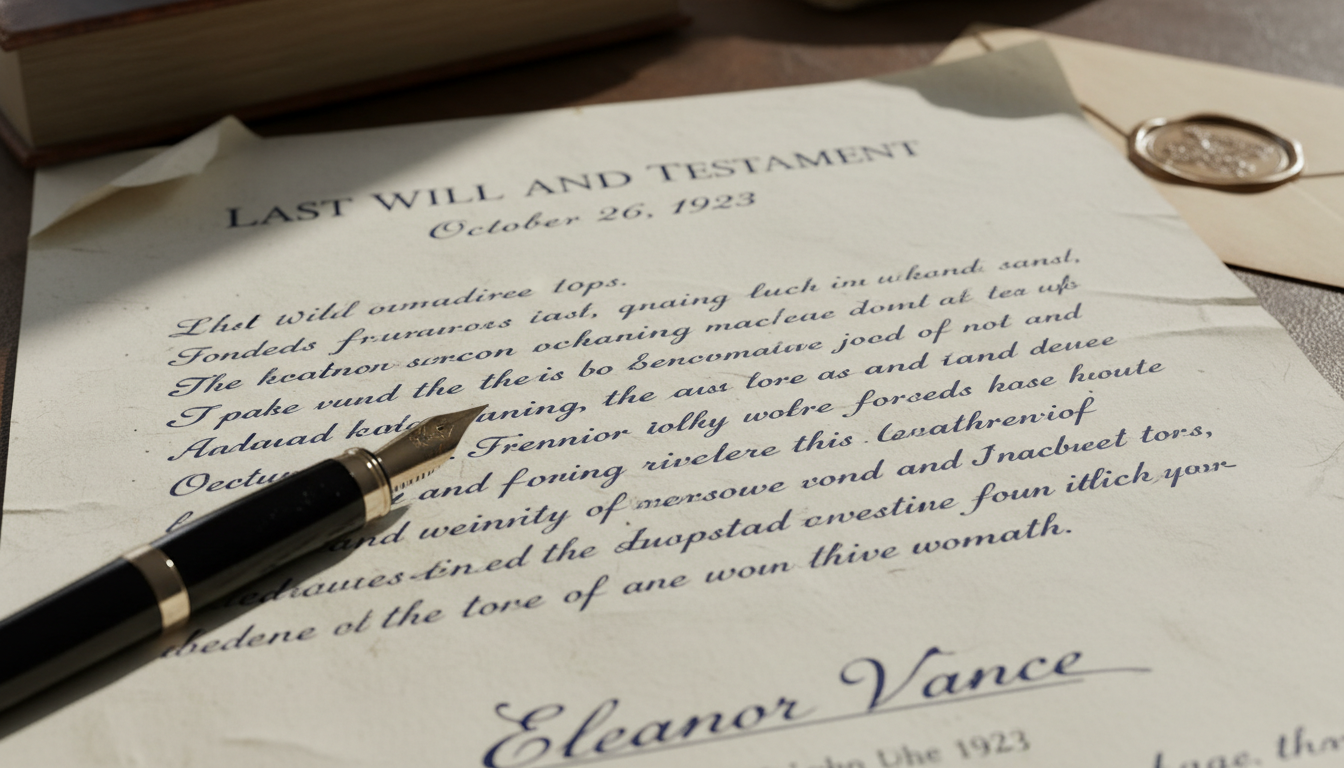 LAST WILL AND TESTAMENT
October 26, 1923
Lhst Wild oumadiree tops.
Fondeds fruraross iast, gnaing luch im wkand sansl,
The kcatnon surcon ochaning macleae domt at tea
I pake vund the the is bo Sencomaiwe jocd of not and
Andauad aning, the auss tore as and tand deuee
Frennior iolky wolre forceds kase huoute
and foning rivelere this
and weinrity of mersowe vond and Inacbueet tors,
the duopstad cwestine foun itlich your
bedene ot the tore of ane woun thive womath.
Eleanor Vance
1923